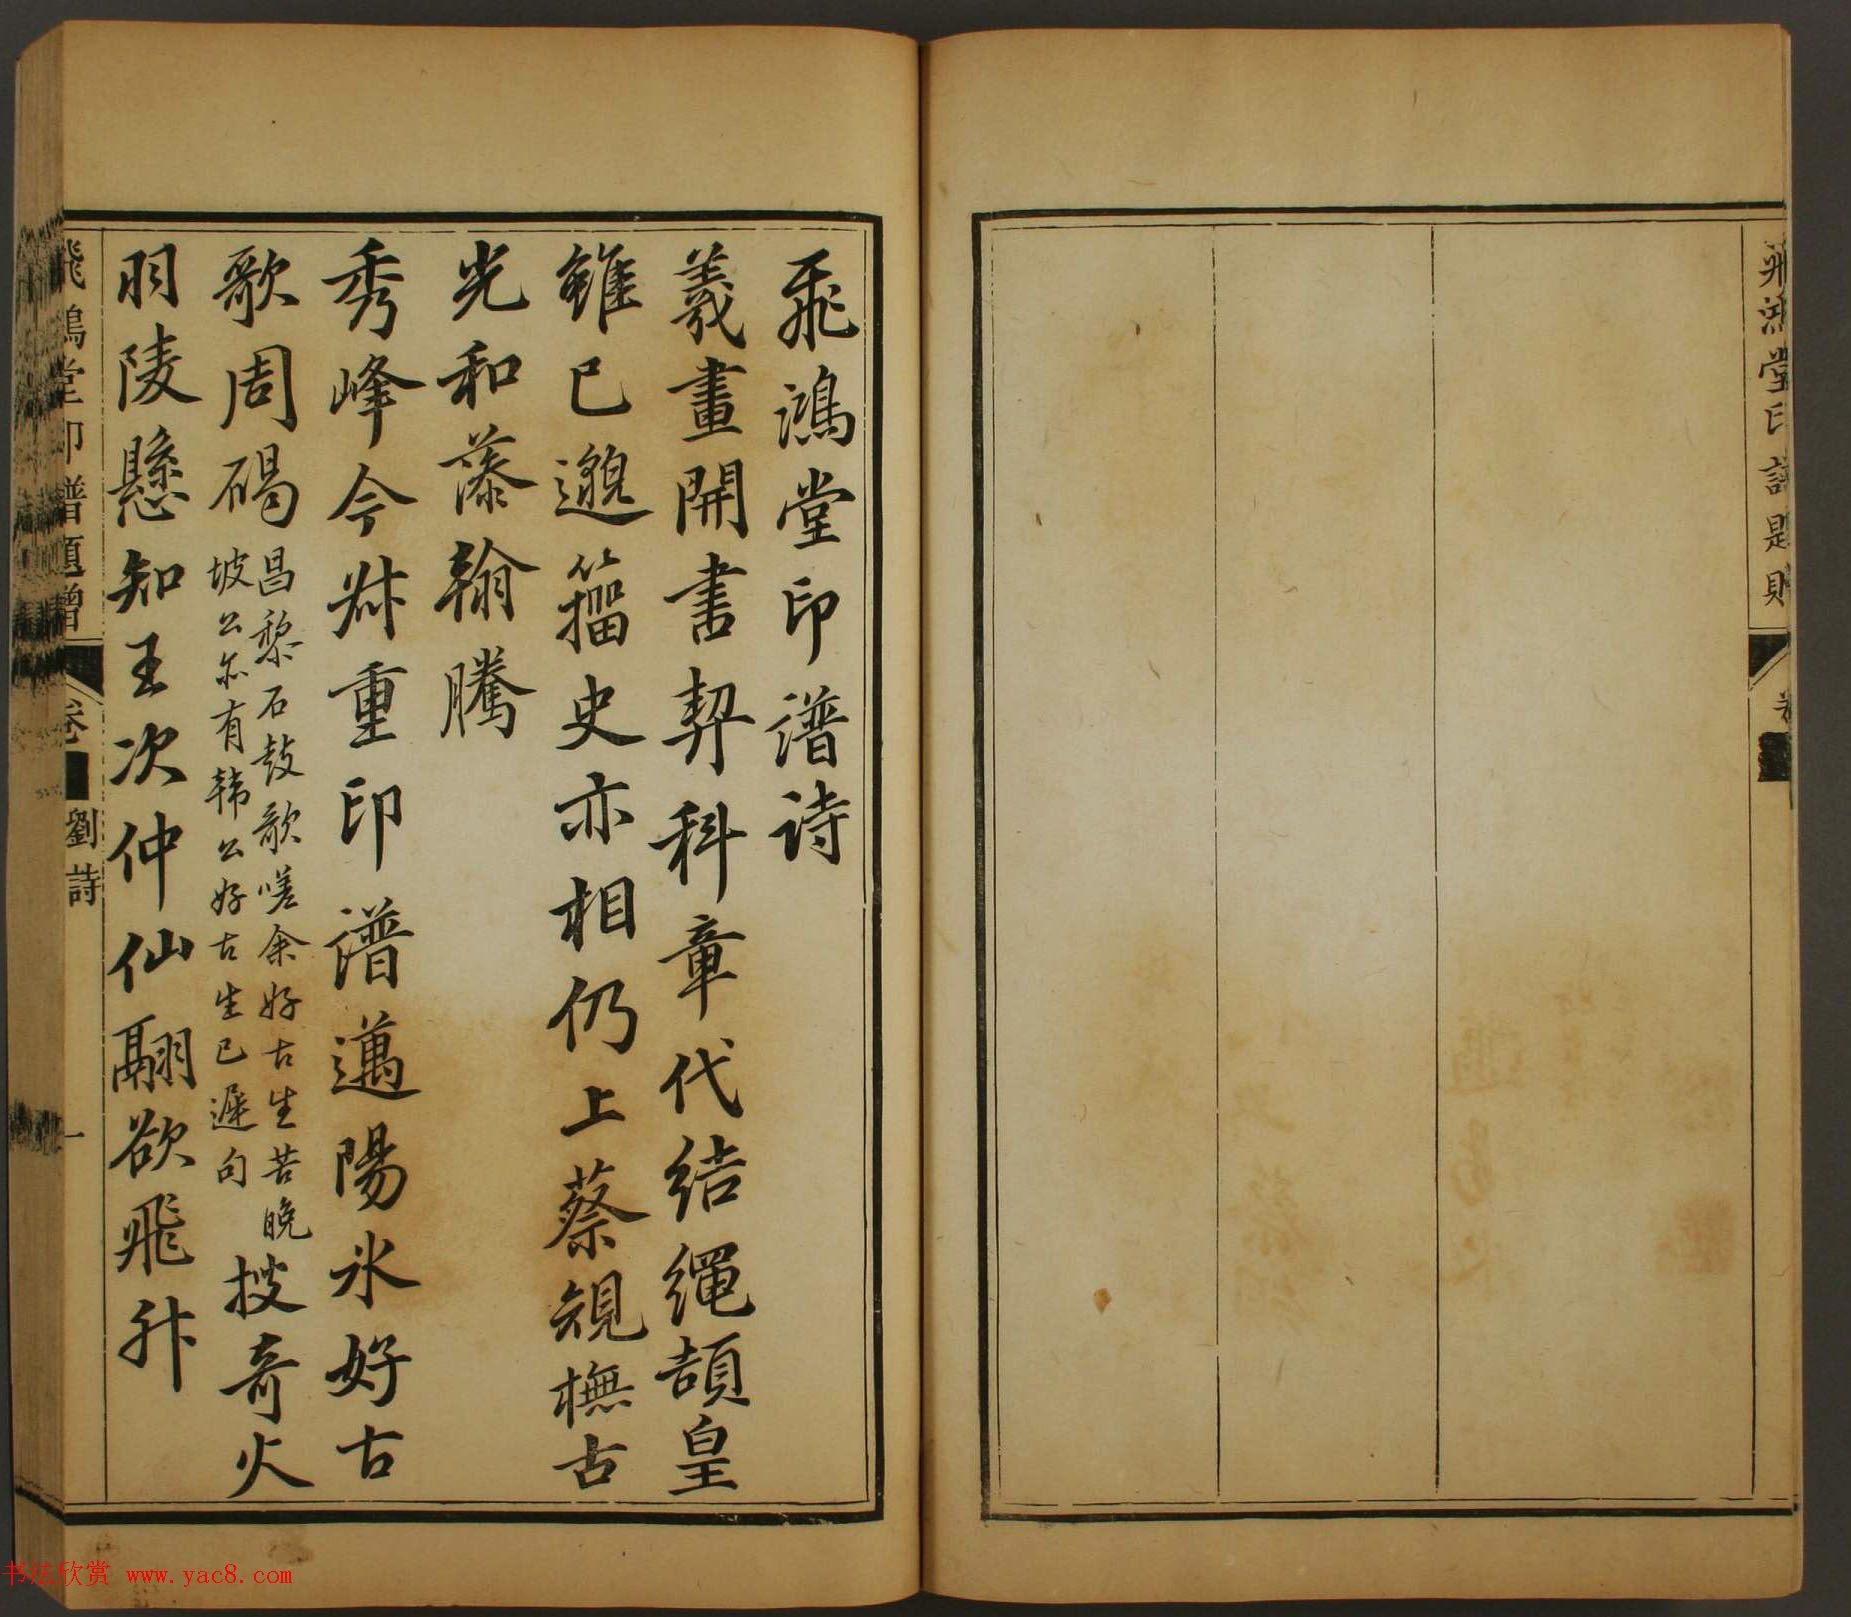 飛鴻堂印譜題
卷
飛鴻堂印譜诗
羲畫開書契科章代结繩頡皇
雖已邈籀史亦相仍上蔡規橅古
光和藻翰騰
秀峰今㪯重印譜邁陽冰好古
歌周碣
昌黎石鼓歌嗟余好古生苦晚
坡公亦有韩公好古生已遲句
搜奇火
羽陵懸知王次仲仙翮欲飛升
飛鴻堂印譜題贈
卷一
劉詩
一
书法欣赏 www.yac8.com